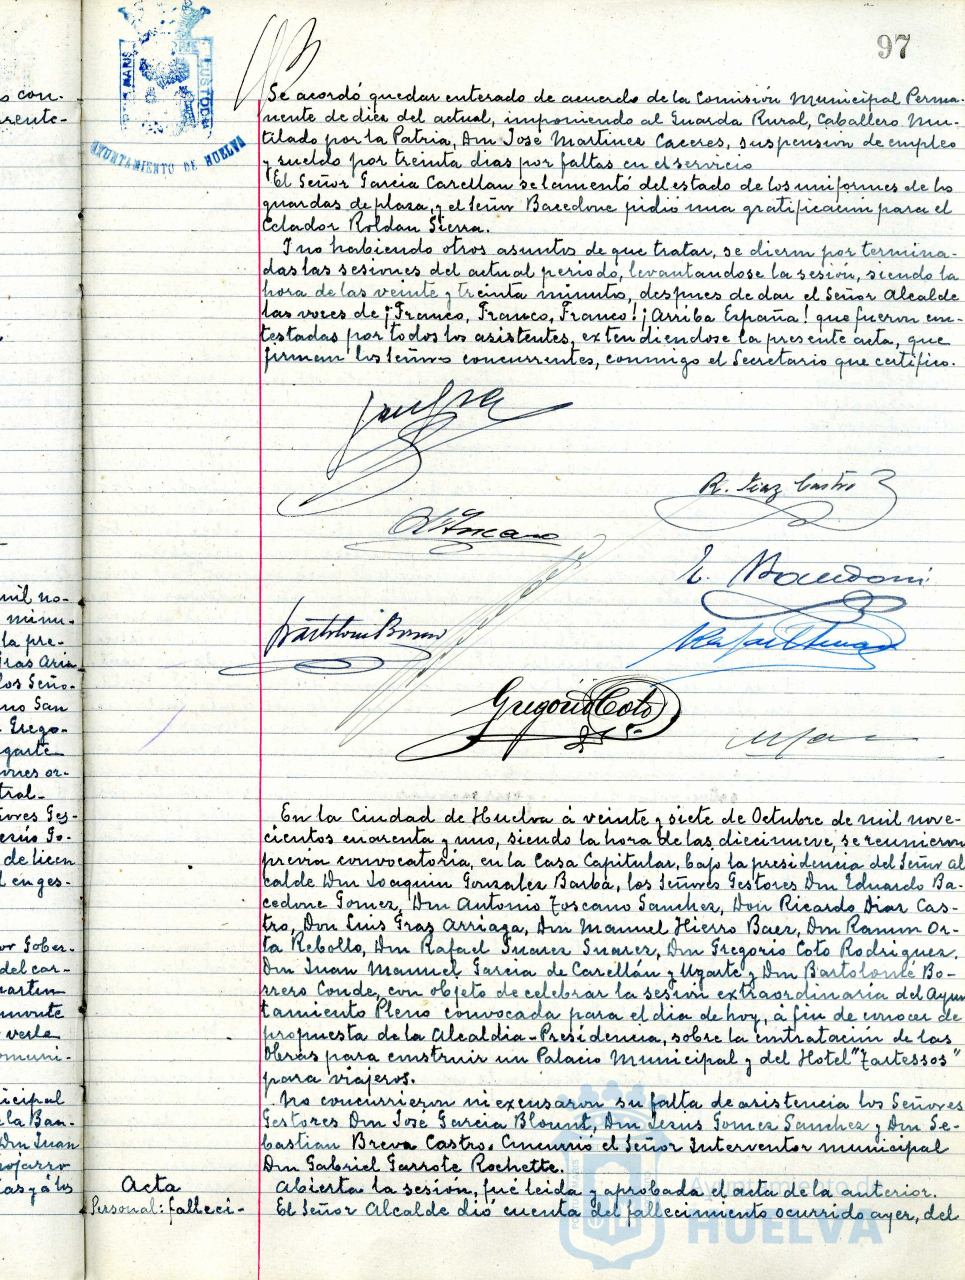 97
AYUNTAMIENTO DE HUELVA
Se acordó quedar enterado de acuerdo de la Comisión Municipal Perma-
nente de diez del actual, imponiendo al Guarda Rural, Caballero Mu-
tilado por la Patria, Don José Martinez Caceres, suspension de empleo
y sueldo por treinta dias por faltas en el servicio
El Señor Garcia Carellan se lamentó del estado de los uniformes de los
guardas de plaza, y el Señor Bacedone pidió una gratificación para el
Celador Roldan Sierra.
Y no habiendo otros asuntos de que tratar, se dieron por termina-
das las sesiones del actual periodo, levantandose la sesión, siendo la
hora de las veinte y treinta minutos, despues de dar el Señor Alcalde
las voces de ¡Franco, Franco, Franco! ¡Arriba España! que fueron con-
testadas por todos los asistentes, extendiendose la presente acta, que
firman los Señores concurrentes, conmigo el Secretario que certifico.
R. Diaz Castro
A. Toscano
Bartolomé Borrero
Rafael Suarez
Gregorio Coto
En la Ciudad de Huelva á veinte y siete de Octubre de mil nove-
cientos cuarenta y uno, siendo la hora de las diecinueve, se reunieron
previa convocatoria, en la Casa Capitular, bajo la presidencia del Señor Al
calde Don Joaquin Gonzalez Barba, los Señores Gestores Don Eduardo Ba-
cedone Gomez, Don Antonio Toscano Sanchez, Don Ricardo Diaz Cas-
tro, Don Luis Gras Arriaga, Don Manuel Hierro Baez, Don Ramon Or-
ta Rebollo, Don Rafael Suarez Suarez, Don Gregorio Coto Rodriguez,
Don Juan Manuel Garcia de Carellán y Ugarte y Don Bartolomé Bo-
rrero Conde, con objeto de celebrar la sesión extraordinaria del Ayun
tamiento Pleno convocada para el dia de hoy, á fin de conocer de
propuesta de la Alcaldia-Presidencia, sobre la contratación de las
Obras para construir un Palacio Municipal y del Hotel "Tartessos"
para viajeros.
No concurrieron ni excusaron su falta de asistencia los Señores
Gestores Don José Garcia Blount, Don Jesus Gomez Sanchez y Don Se-
bastian Breva Castro. Concurrió el Señor Interventor municipal
Don Gabriel Garrote Rochette.
Acta
Abierta la sesión, fué leida y aprobada el acta de la anterior.
Personal: falleci-
El Señor Alcalde dió cuenta del fallecimiento ocurrido ayer, del
Ayuntamiento de
HUELVA